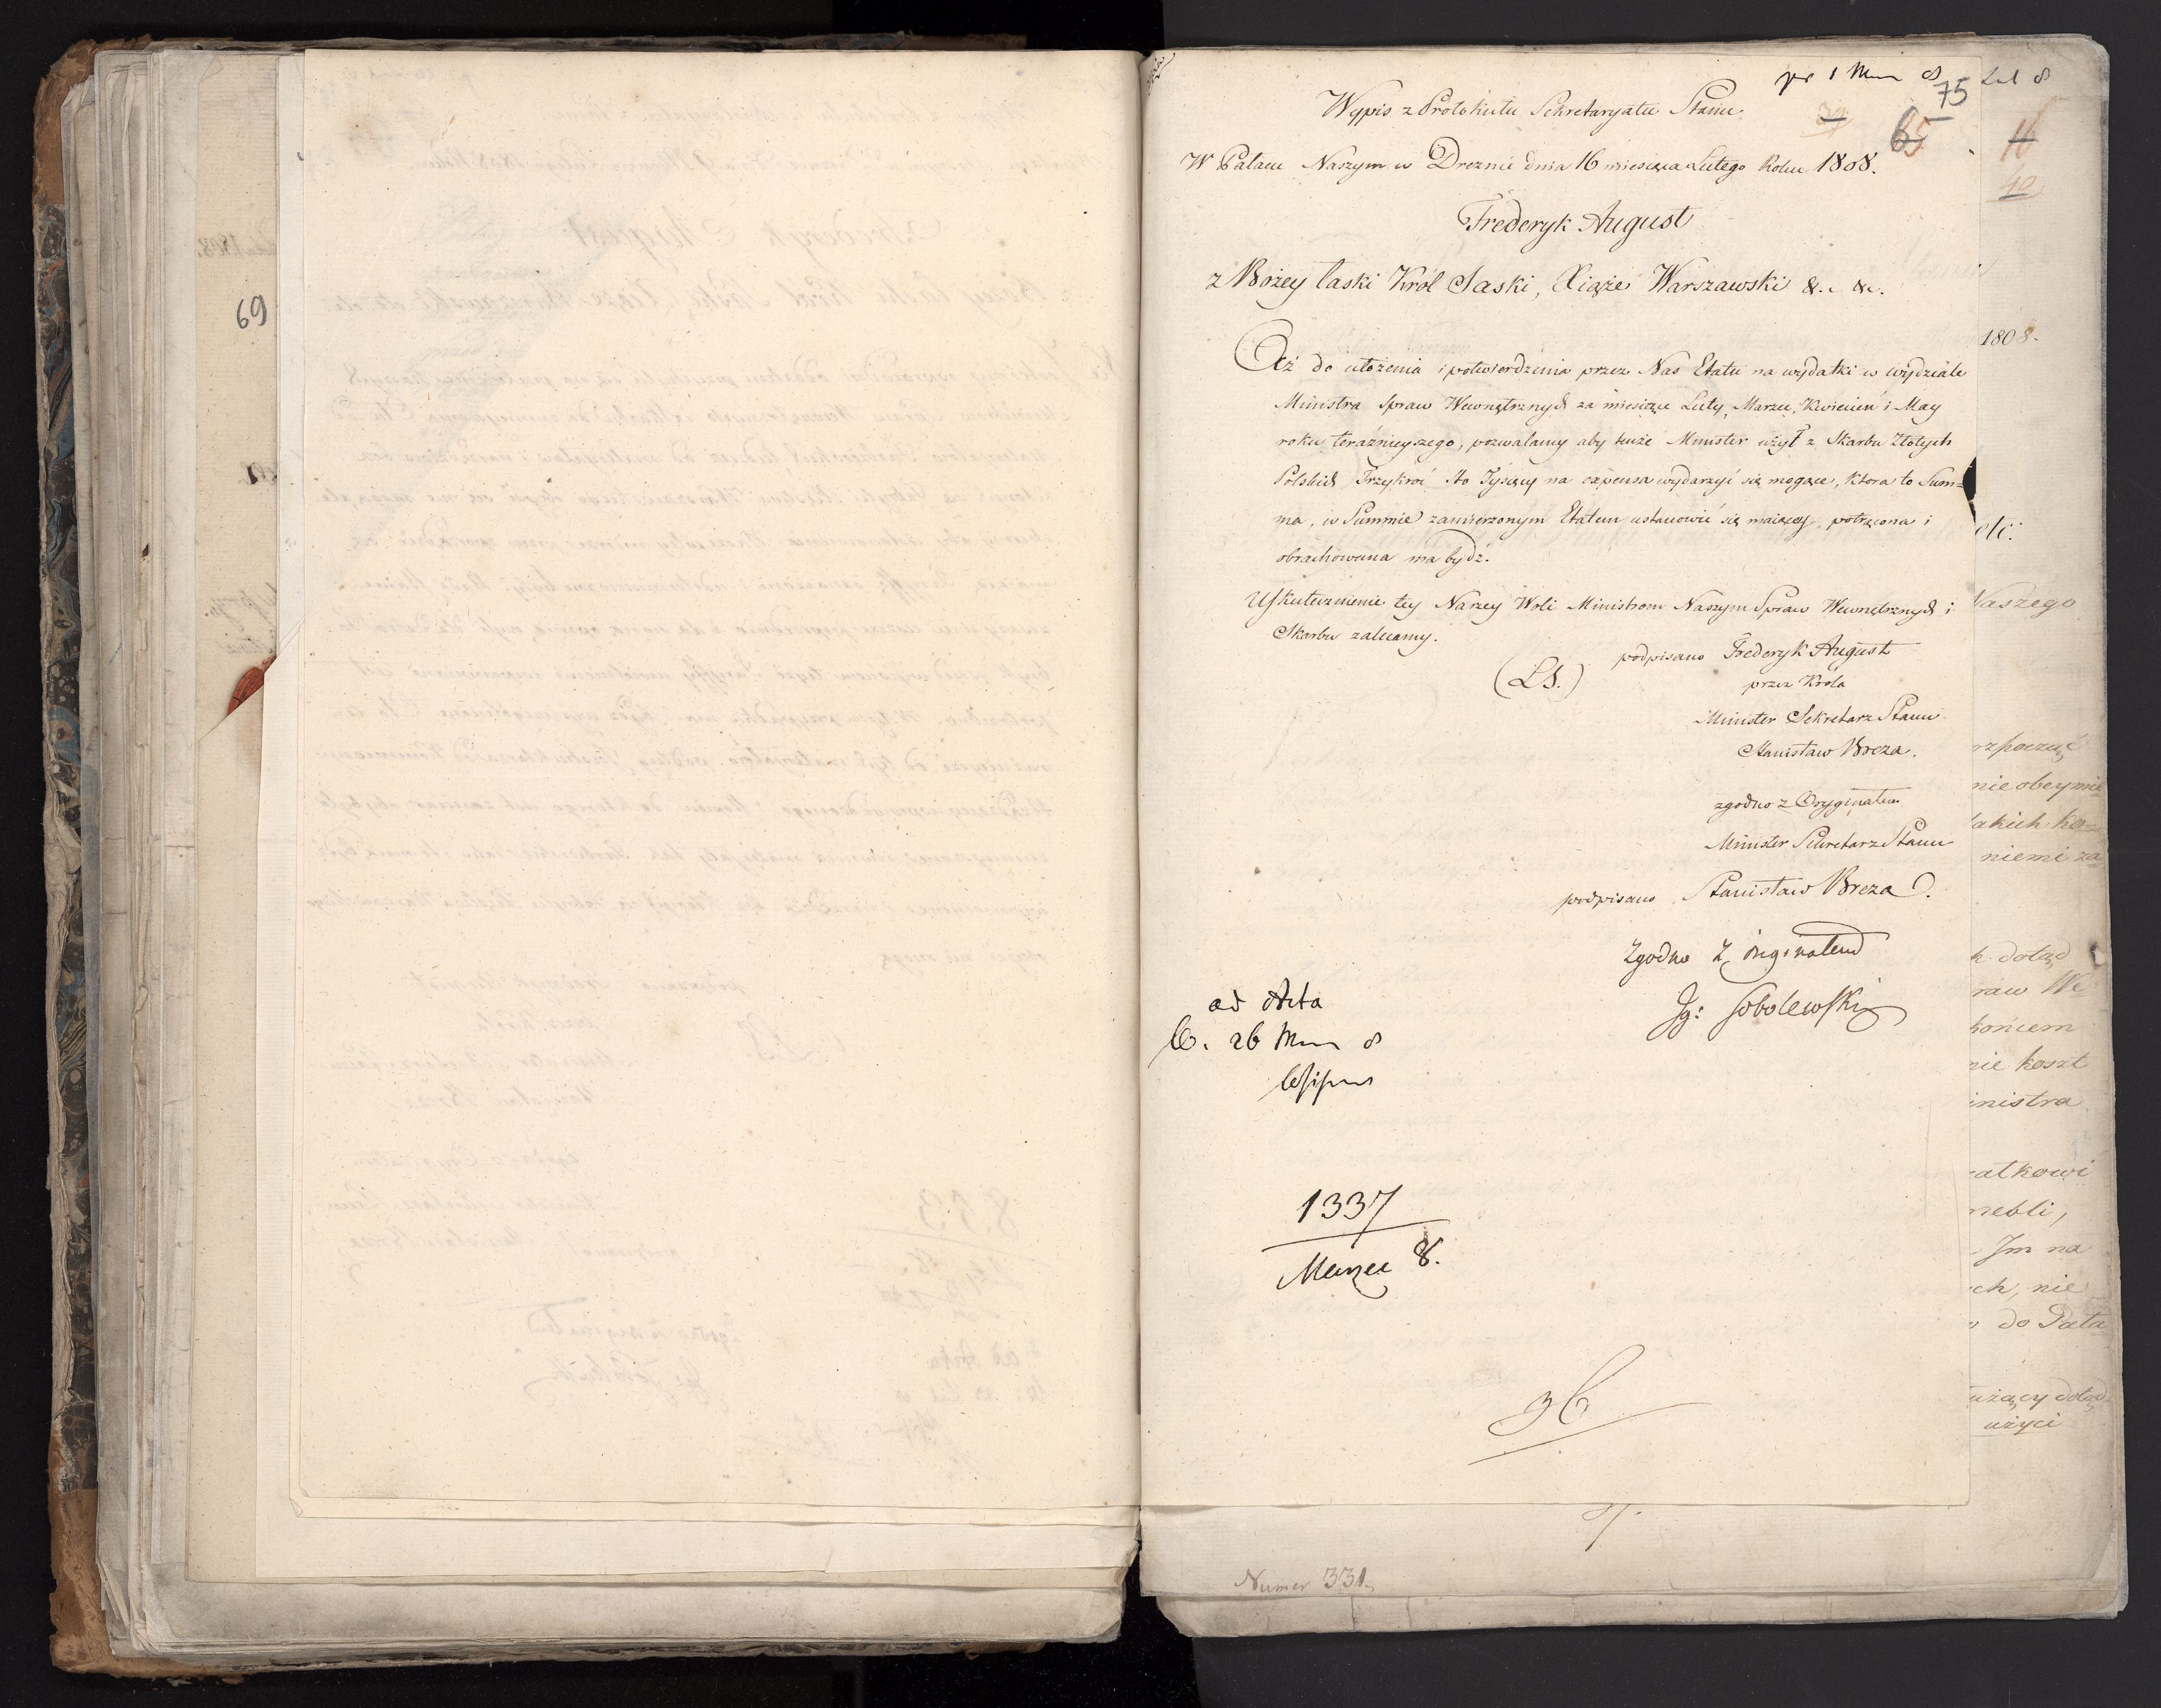 69
pr 1 8
75
65
Wypis z Protokułu Sekretaryatu Stanu
W Pałacu Naszym w Dreznie dnia 16 miesiąca Lutego Roku 1808.
Frederyk August
z Bożey łaski Król Saski, Xiąże Warszawski &. &c.
Aż do ułożenia i potwierdzenia przez Nas Etatu na wydatki w wydziale
Ministra Spraw Wewnętrznych za miesiące Luty, Marzec, Kwiecień i May
roku teraźnieyszego, pozwalamy aby tenże Minister użył z Skarbu Złotych
Polskich Trzykroć Sto Tysięcy na expensa wydarzyć się mogące, która to Sum=
ma, w Summie zamierzonym Etatem ustanowić się maiącey, potrącona i
obrachowana ma bydź.
Uskutecznienie tey Naszey Woli Ministrom Naszym Spraw Wewnętrznych i
Skarbu zalecamy.
podpisano Frederyk August
(LS.)
przez Króla
Minister Sekretarz Stanu
Stanisław Breza.
zgodno z Oryginałem
Minister Sekretarz Stanu
podpisano Stanisław Breza
Zgodno z Originałem
Ig: Sobolewski
ad Acta
26 8
1337
Marzec 8.
Numer 331.
16
40
1808.
etc:
Naszego
nie obeymie
niemi za
dotąd
raw We
końcem
nie koszt
inistra
atkowi
mebli,
Im na
ch, nie
do Pała
użący dotąd
użyci